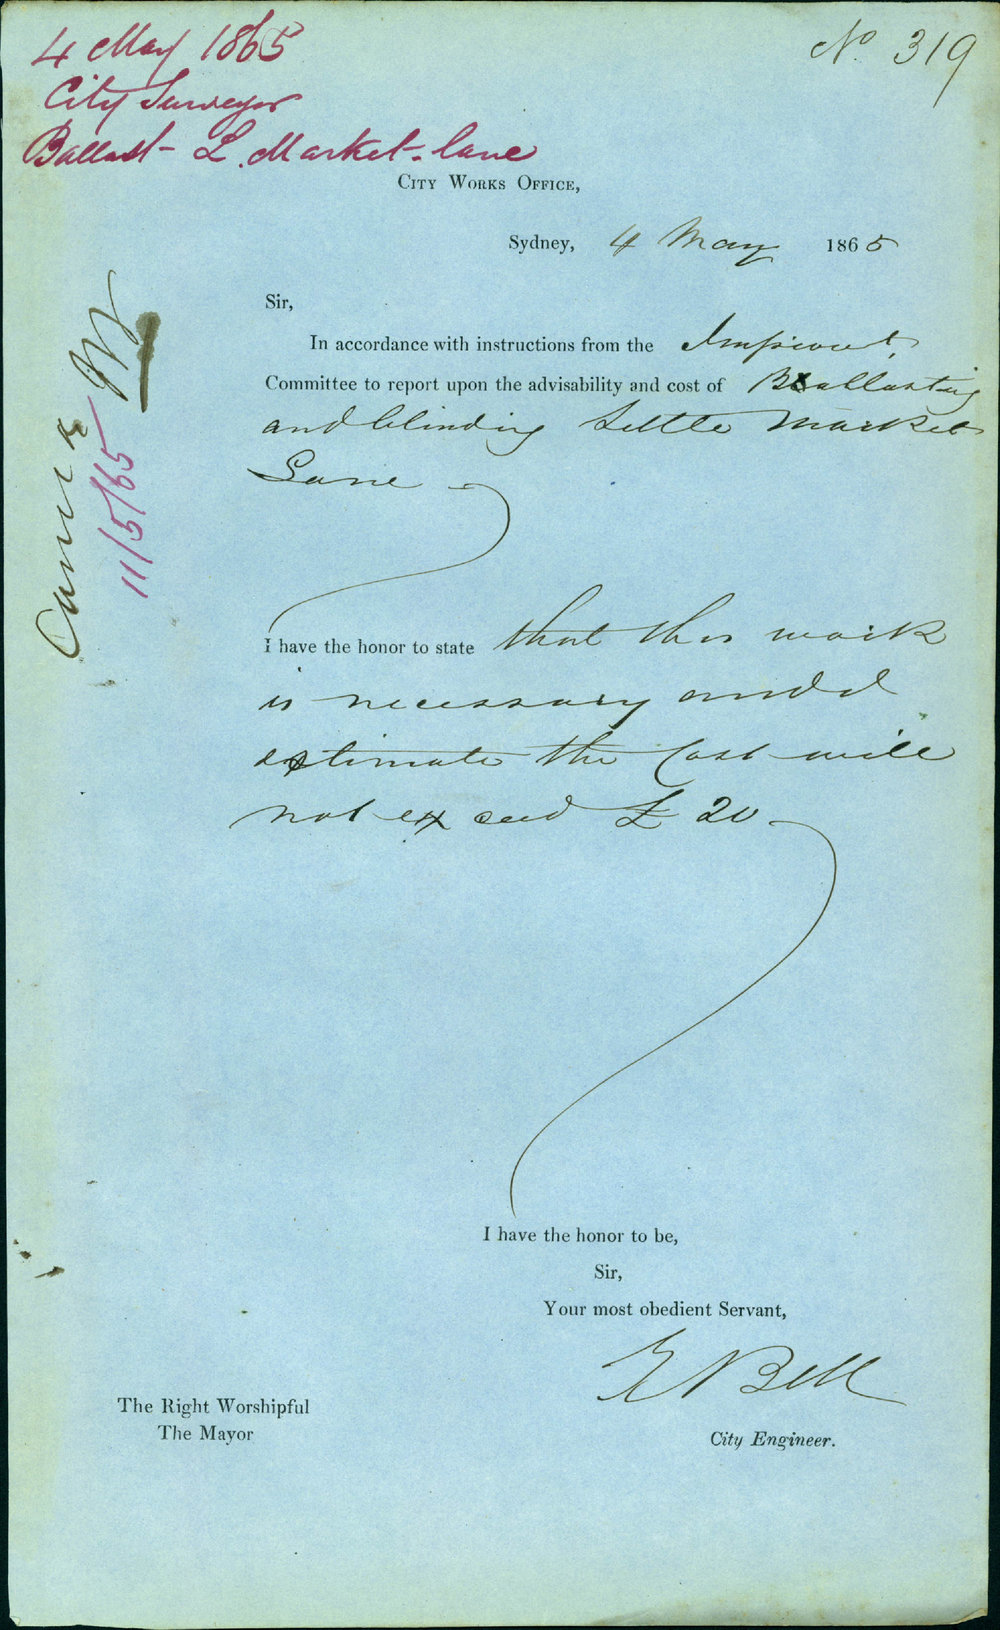 4 May 1865
City Surveyor
Ballast L. Market-lane
No. 319
CITY WORKS OFFICE,
Sydney, 4 May 1865
Sir,
In accordance with instructions from the Improvemt.
Committee to report upon the advisability and cost of Ballasting
and blinding Little Market
Lane
I have the honor to state that this work
is necessary and I
estimate the Cost will
not exceed £20
I have the honor to be,
Sir,
Your most obedient Servant,
E Bell
City Engineer.
The Right Worshipful
The Mayor
11/5/65